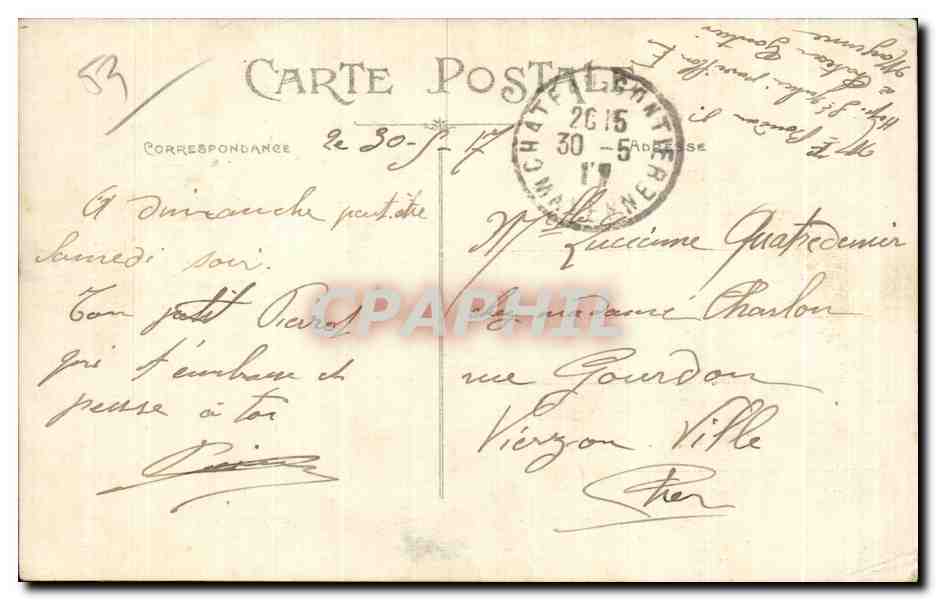 53
CARTE POSTALE
CORRESPONDANCE
ADRESSE
le 30-5-17
CHATEAU-GONTIER
20 15
30 -5
17
MAYENNE
A dimanche peut être
Samedi soir.
Ton petit Pierrot
qui t'embrasse et
pense à toi
Mlle Lucienne Quatredenier
chez madame Charlon
rue Gourdon
Vierzon Ville
Cher
Hôpi. St Julien pavillon
a Chateau Gontier
Mayenne
CPAPHIL